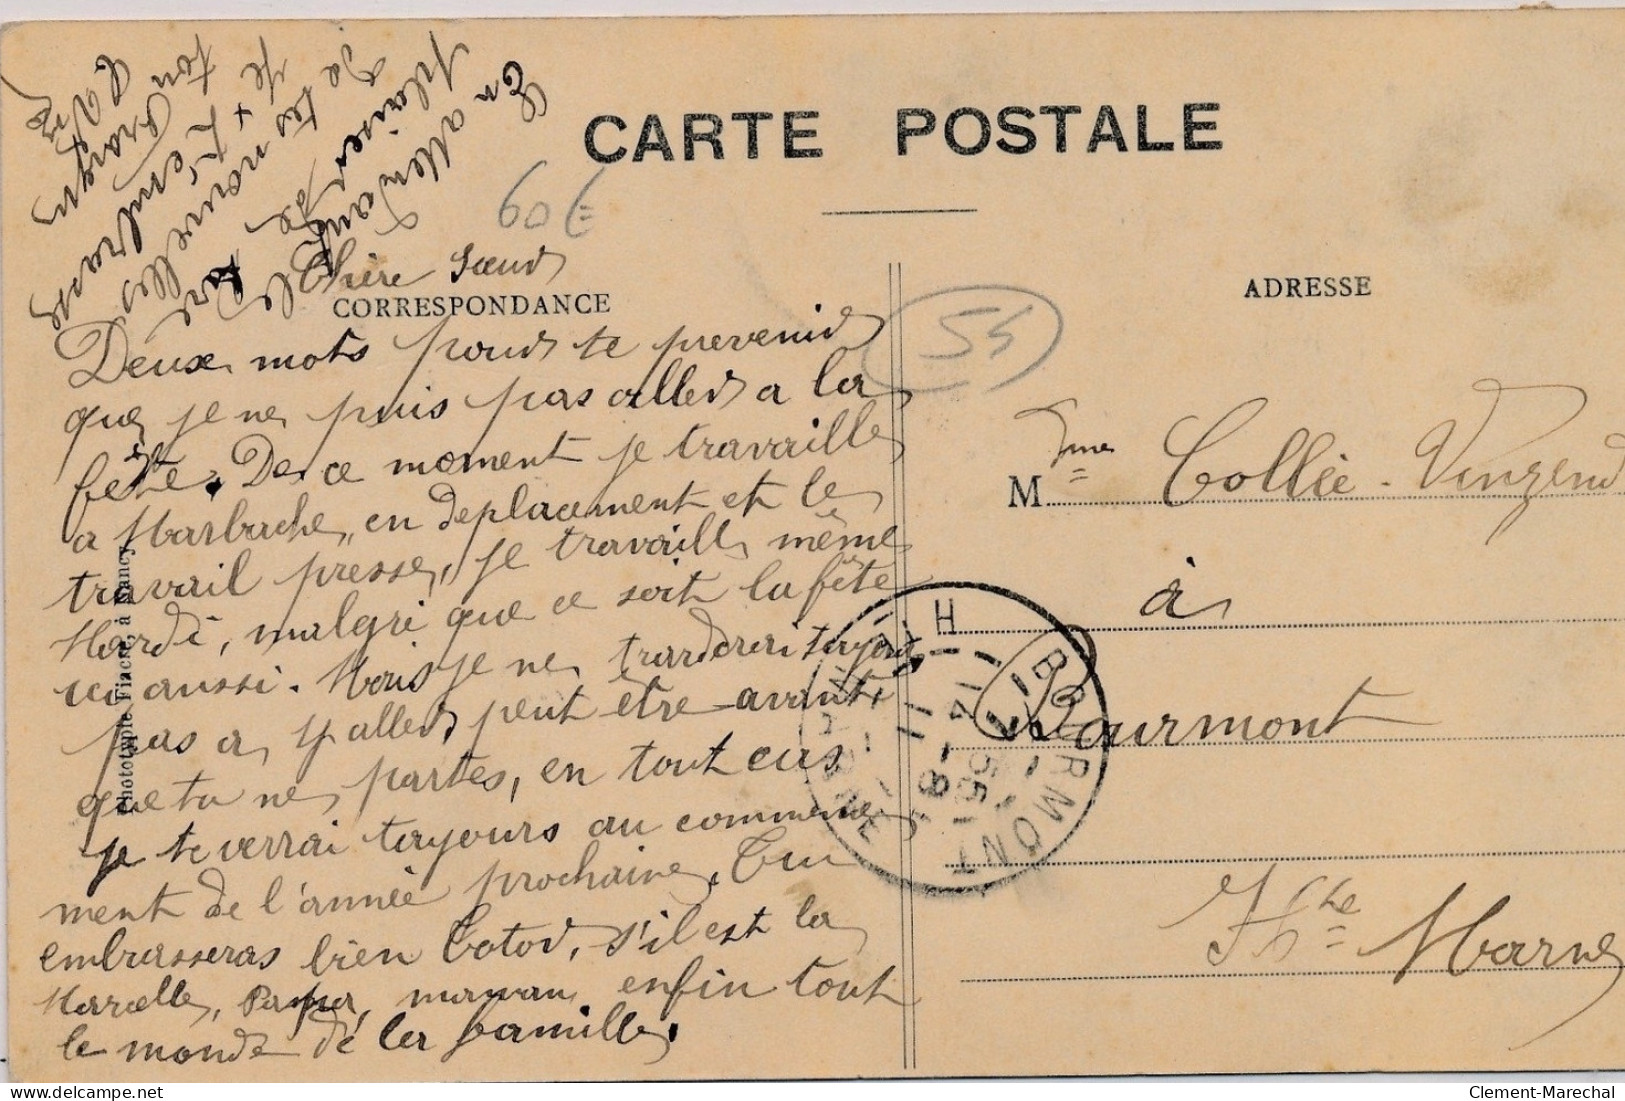 CARTE POSTALE
60€
CORRESPONDANCE
ADRESSE
54
Chère Sœur
Deux mots pour te prevenir
que je ne puis pas aller a la
fête. De ce moment je travaille
a Marbache, en deplacement et le
travail presse, je travaille même
Mardi, malgré que ce soit la fête
ici aussi. Mais je ne tarderai toujours
pas a y aller, peut être avant
que tu ne partes, en tout cas
je te verrai toujours au commence
ment de l'année prochaine. Tu
embrasseras bien Totor, s'il est la
Marcelle, Papa, maman enfin tout
le monde de la famille.
En attendant le
plaisir de
de tes nouvelles
je t'embrasse
ton frangin
Mme Collée-Vinzend
à
Bourmont
Hte Marne
BOURMONT
H
MARNE
Phototypie Fiacre, à Nancy
Clement-Marechal